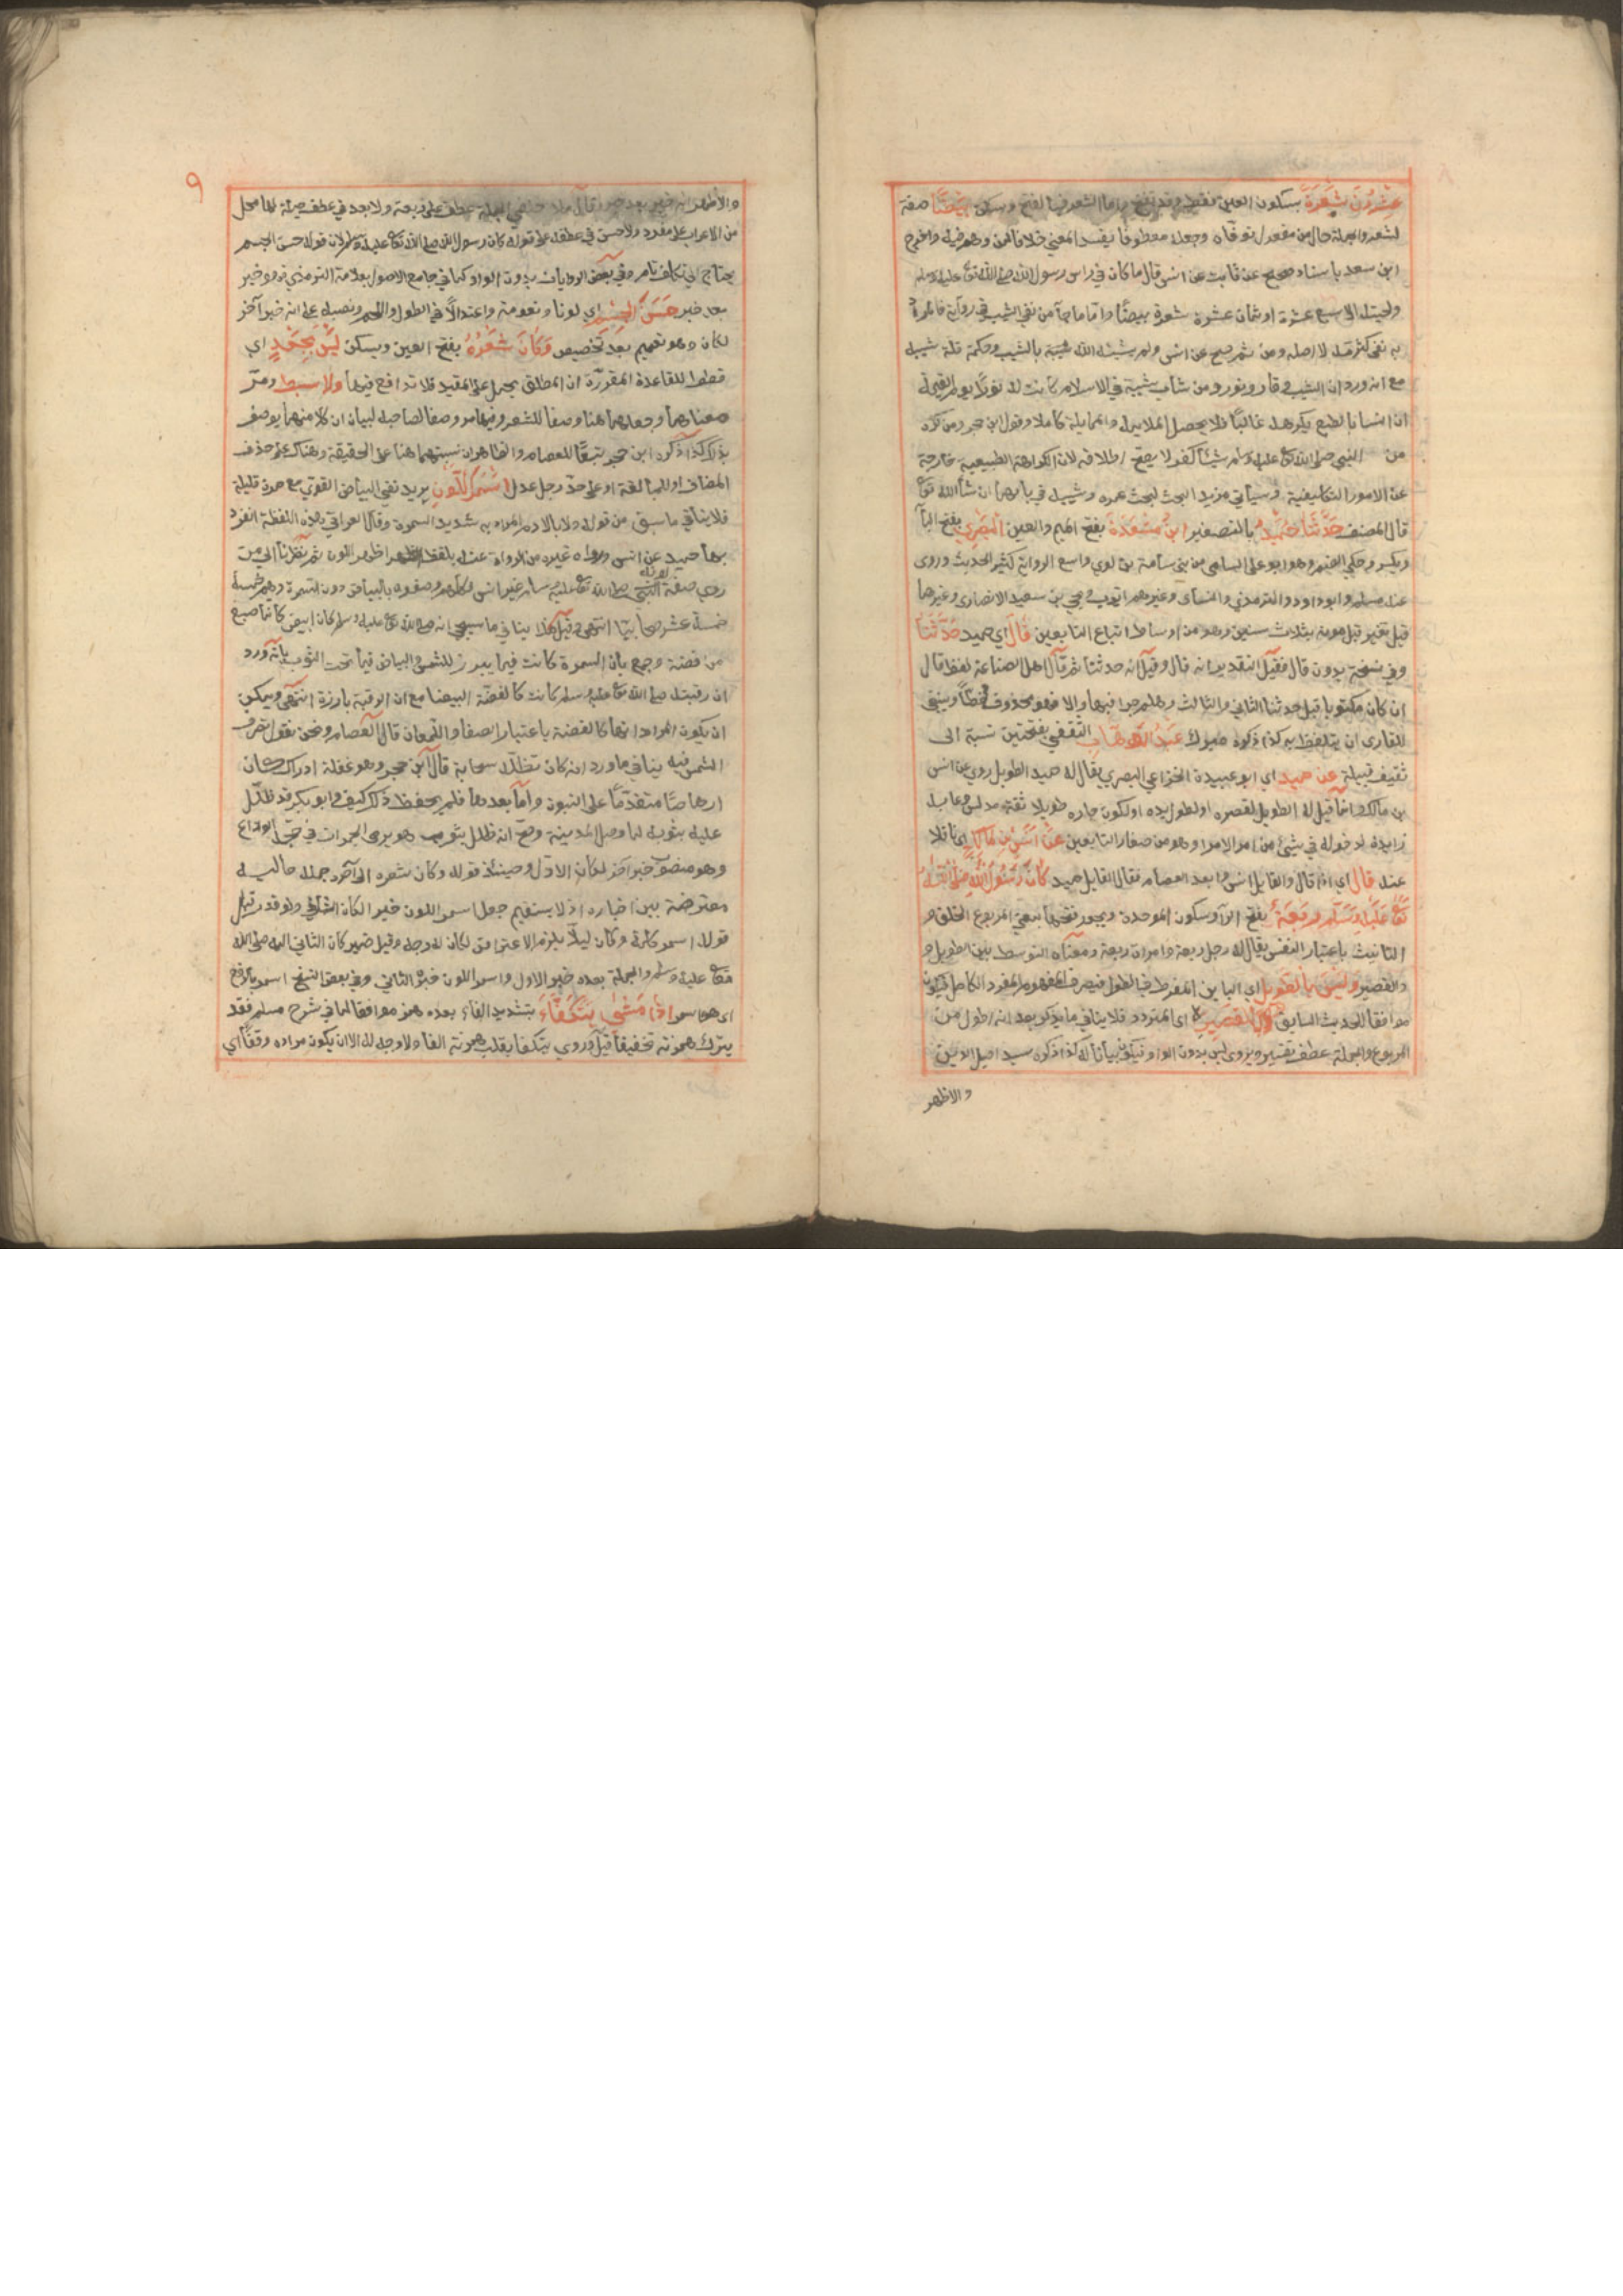 عشرون شعرة بسكون العين فقط وقد تفتح واما الشعر فبالفتح وسكن بيضا صفة
لشعرة والجملة حال من مفعول توفاه وجعله معطوفا يفسد المعنى خلافا لمن وهم فيه واخرج
ابن سعد باسناد صحيح عن ثابت عن انس قال ما كان في راس رسول الله صلى الله تع عليه وسلم
ولحيته الا سبع عشرة او ثمان عشرة شعرة بيضا واما ما جا من نفي الشيب في رواية فالمراد
به نفي كثرته لا اصله ومن ثم صح عن انس ولم يشنه الله بالشيب وحكمة قلة شيبه
مع انه ورد ان الشيب وقار ونور ومن شاب شيبة في الاسلام كانت له نورا يوم القيمة
ان النسا بالطبع يكرهنه غالبا فلا يحصل الملايمة والممايلة كاملا وقول ابن حجر ومن كره
من النبي صلى الله تع عليه وسلم شيئا كفر لا يصح اطلاقه لان الكراهة الطبيعية خارجة
عن الامور التكليفية وسياتي مزيد البحث لبحث عمره وشيبه في بابهما ان شا الله تع
قال المصنف حدثنا حميد بالتصغير ابن مسعدة بفتح الميم والعين البصري بفتح البا
ويكسر وحكي الضم وهو ابو علي السامي من بني سامة بن لوي واسع الرواية كثير الحديث وروى
عنه مسلم وابو داود والترمذي والنساى وغيرهم ايوب ويحيى بن سعيد الانصارى وغيرهما
قبل تغير قبل موته بثلاث سنين وهو من اوساط اتباع التابعين قال اي حميد حدثنا
وفي نسخة بدون قال فقيل التقدير انه قال وقيل انه حدثنا ثم قال اهل الصناعة لفظ قال
ان كان مكتوبا قبل حدثنا الثاني والثالث وهلم جرا فبها والا فهو محذوف خطا وينبغي
للقارى ان يتلفظ به كذا ذكره ميرك عبد الوهاب الثقفي بفتحتين نسبة الى
ثقيف قبيلة عن حميد اي ابو عبيدة الخزاعي البصري يقال له حميد الطويل روي عن انس
بن مالك وانما قيل له الطويل لقصره او لطول يده او لكون جاره طويلا ثقة مدلس وعابه
زايدة لدخوله في شيئ من امر الامرا وهو من صغار التابعين عن انس بن مالك اي ناقلا
عنه قال اي انه قال والقايل انس وابعد العصام فقال القايل حميد كان رسول الله صلى الله
تع عليه وسلم ربعة بفتح الرا وسكون الموحدة ويجوز فتحها بمعني المربوع الخلق و
التانيث باعتبار النفس يقال له رجل ربعة وامراة ربعة ومعناه التوسط بين الطويل و
والقصير وليس بالطويل اي الباين المفرط في الطول فيصرف المفهوم المفرد الكامل فيكون
موافقا للحديث السابق ولا بالقصير اى المتردد فلا ينافي ما يذكر بعد انه اطول من
المربوع والجملة عطف تفسير ويروى ليس بدون الواو فيكون بيانا له كذا ذكره سيد اصيل الدين
والاظهر
٩
والاظهر انه خبر بعد خبر قال ملا حنفي الجملة عطف على ربعة ولا بعد في عطف جملة لها محل
من الاعراب على مفرد ولا حسن في عطفه على قوله كان رسول الله صلى الله تع عليه وسلم لان قوله حسن الجسم
يحتاج الي تكلف تامر وفي بعض الروايات بدون الواو كما في جامع الاصول بعلامة الترمذي فهو خبر
بعد خبر حسن الجسم اي لونا ونعومة واعتدالا في الطول واللحم ونصبه على انه خبر آخر
لكان وهو تعميم بعد تخصيص وكان شعره بفتح العين ويسكن ليس بجعد اي
قطط للقاعدة المقررة ان المطلق يحمل على المقيد فلا تدافع فيهما ولا سبط ومر
معناهما وجعلهما هنا وصفا للشعر وفيما مر وصفا لصاحبه لبيان ان كلا منهما يوصف
بذلك كذا ذكره ابن حجر تبعا للعصام والظاهر ان نسبتهما هنا على الحقيقة وهناك على حذف
المضاف او للمبالغة او على حد رجل عدل اسمر اللون يريد نفي البياض القوي مع حمرة قليلة
فلا ينافي ما سبق من قوله ولا بالادم المراد به شديد السمرة وقال العراقي هذه اللفظة انفرد
بها حميد عن انس ورواه غيره من الرواة عنه بلفظ ازهر اللون ثم نظرنا الى من
روي صفة لونه النبي صلى الله تع عليه وسلم غير انس فكلهم وصفوه بالبياض دون السمرة وهم خمسة
خمسة عشر صحابيا انتهى وقيل هذا ينافي ما سيجي انه صلى الله تع عليه وسلم كان ابيض كانما صيغ
من فضة وجمع بان السمرة كانت فيما يبرز للشمس والبياض فيما تحت الثوب بانه ورد
ان رقبته صلى الله تع عليه وسلم كانت كالفضة البيضا مع ان الرقبة بارزة انتهى ويمكن
ان يكون المراد انها كالفضة باعتبار الصفا واللمعان قال العصام ونحن نقول تصرف
الشمس فيه ينافي ما ورد انه كان تظلله سحابة قال ابن حجر وهو غفلة اذ ذاك كان
ارهاصا متقدما على النبوة واما بعدها فلم يحفظ ذلك كيف وابو بكر قد ظلل
عليه بثوبه لما وصل المدينة وصح انه ظلل بثوب وهو يرمى الجمرات في حجة الوداع
وهو منصوب خبر آخر لكان الاول وحينئذ قوله وكان شعره الى آخره جملة حالية
معترضة بين اخباره اذ لا يستقيم جعل اسمر اللون خبر الكان الثاني ولو قدر قبل
قوله اسمر كان وكان ليلا يلزم الاعتراض لكان له وجه وقيل ضمير كان الثاني اليه صلى الله
تع عليه وسلم والجملة بعده خبر الاول واسمر اللون خبر الثاني وفي بعض النسخ اسمر بالرفع
اى هو اسمر اذا مشى يتكفا بتشديد الفاء بعده همز موافقا لما في شرح مسلم فقد
يترك همزته تخفيفا قيل وروي يتكفا بقلب همزته الفا ولا وجه له الا ان يكون مراده وقفا اي